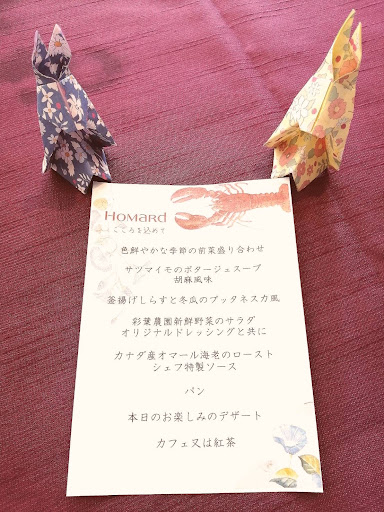 HOMARD
こころを込めて
色鮮やかな季節の前菜盛り合わせ
サツマイモのポタージュスープ
胡麻風味
釜揚げしらすと冬瓜のプッタネスカ風
彩葉農園新鮮野菜のサラダ
オリジナルドレッシングと共に
カナダ産オマール海老のロースト
シェフ特製ソース
パン
本日のお楽しみのデザート
カフェ又は紅茶